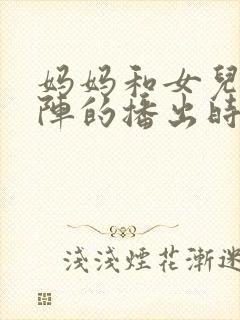 妈妈和女兒
陣的播出時
淺淺煙花漸迷